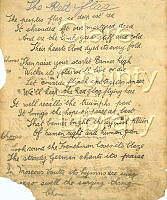 The Red Flag
The peoples flag is deepest red
It shrouded oft our martyred dead
And ere their limbs grew stiff and cold
Their hearts blood dyed its every fold
Chorus Then raise your scarlet banner high
Within its shade we'll live or die
Let cowards flinch and traitors sneer
We'll keep the red flag flying here
It well recalls the triumphs past
It brings the hope of peace at last
That banner bright the symbol plain
Of human right and human gain
Chorus
Look round the Frenchman loves its blaze
The sturdy German chants its praise
In Moscow's vaults its hymns are sung
swell the surging throng